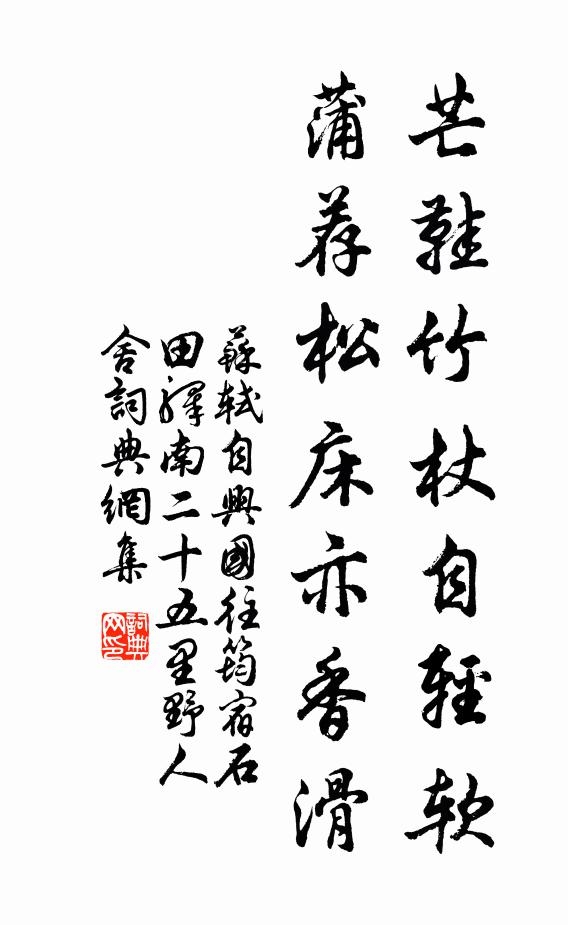 芒鞋竹杖自輕軟
蒲荐松床亦香滑
蘇軾自興國往筠宿石
田驛南二十五里野人
舍詞典網集
詞典
网印